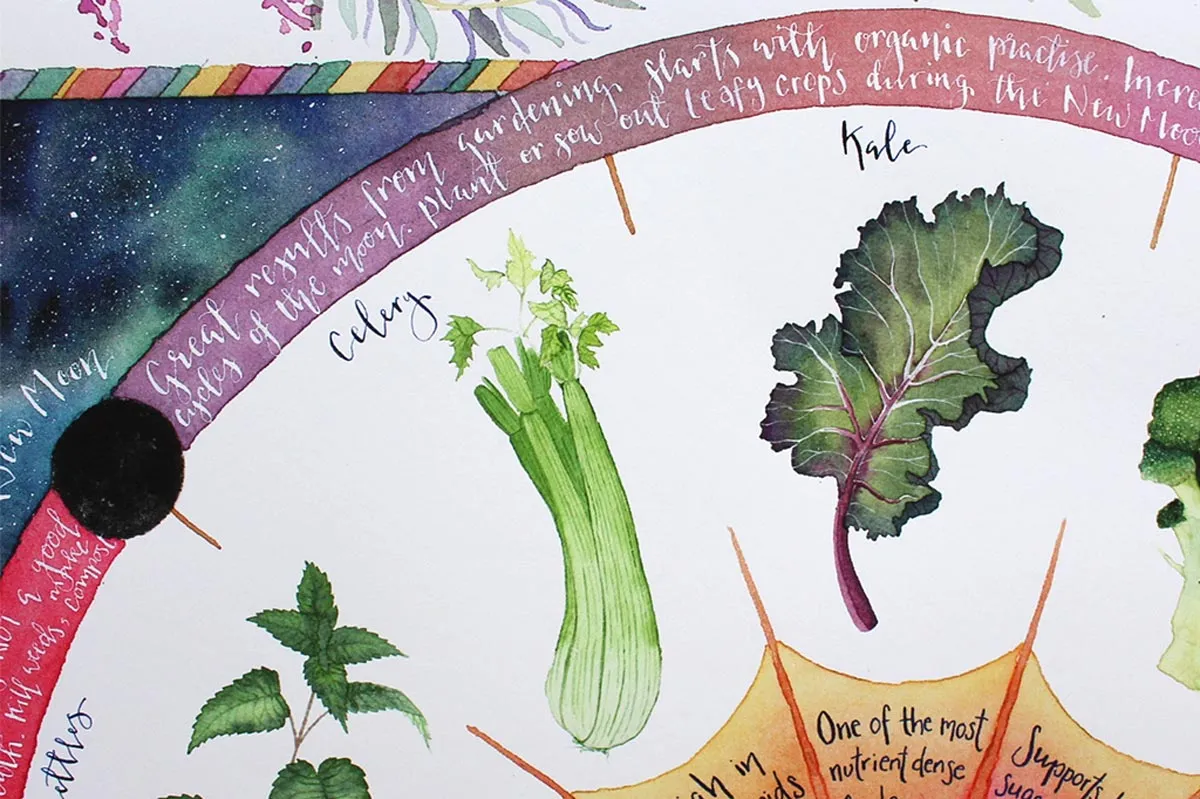 Great results from gardening starts with organic practise. Incre
cycles of the moon. plant or sow out leafy crops during the New Moo
New Moon
Kale
Celery
& good
make
kill weeds, compost
ettles
One of the most
nutrient dense
Supports
h in